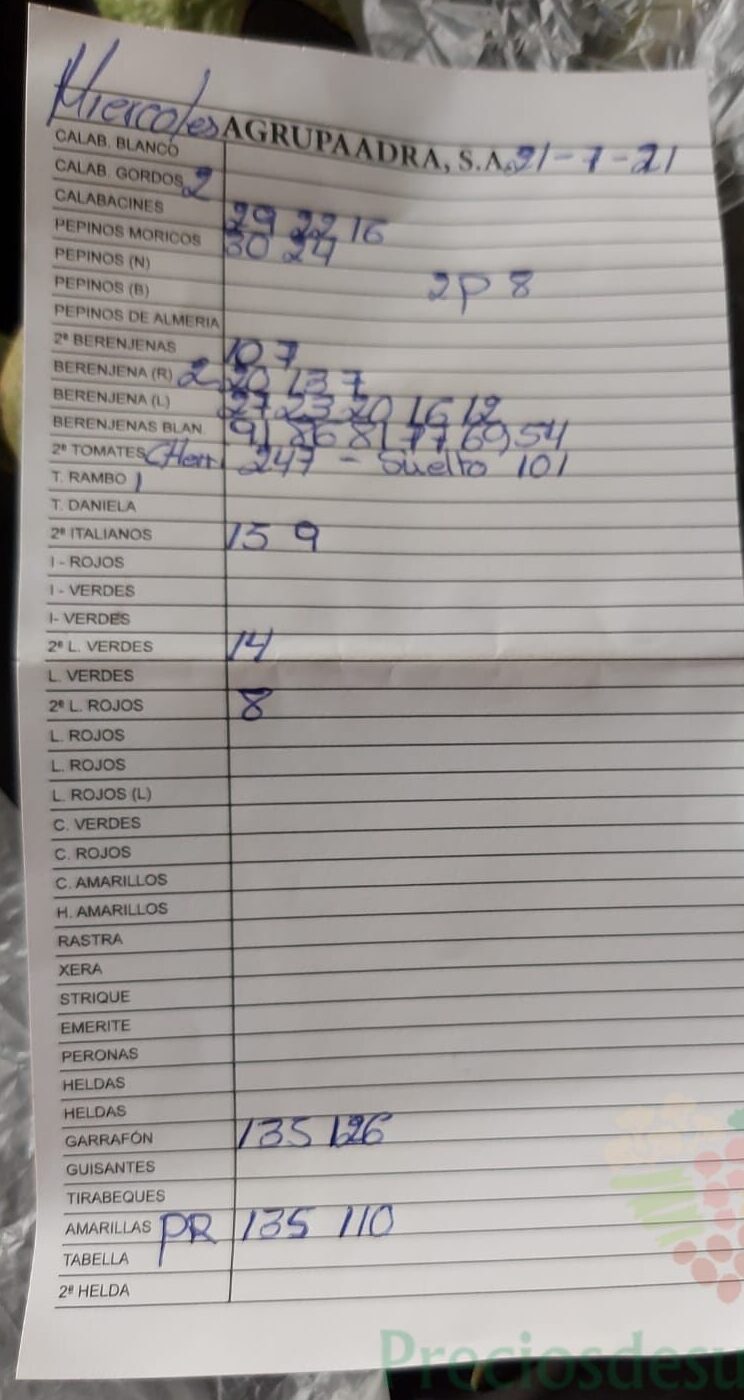 Miercoles AGRUPAADRA, S.A. 21-7-21
CALAB. BLANCO
CALAB. GORDOS 2
CALABACINES 29 22 16
PEPINOS MORICOS 30 24
PEPINOS (N)
PEPINOS (B) 2P 8
PEPINOS DE ALMERIA
2ª BERENJENAS 10 7
BERENJENA (R) 2 20 13 7
BERENJENA (L) 27 23 20 16 12
BERENJENAS BLAN. 91 86 81 77 69, 54
2ª TOMATES CHerri 247 - Suelto 101
T. RAMBO 1
T. DANIELA
2ª ITALIANOS 15 9
I - ROJOS
I - VERDES
I- VERDES
2ª L. VERDES 14
L. VERDES
2ª L. ROJOS 8
L. ROJOS
L. ROJOS
L. ROJOS (L)
C. VERDES
C. ROJOS
C. AMARILLOS
H. AMARILLOS
RASTRA
XERA
STRIQUE
EMERITE
PERONAS
HELDAS
HELDAS
GARRAFÓN 135 126
GUISANTES
TIRABEQUES
AMARILLAS PR 135 110
TABELLA
2ª HELDA
Preciosdesu